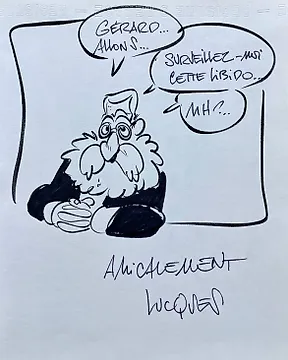 GÉRARD...
ALLONS...
SURVEILLEZ-MOI
CETTE LIBIDO...
MH?...
AMICALEMENT
LUCQUES